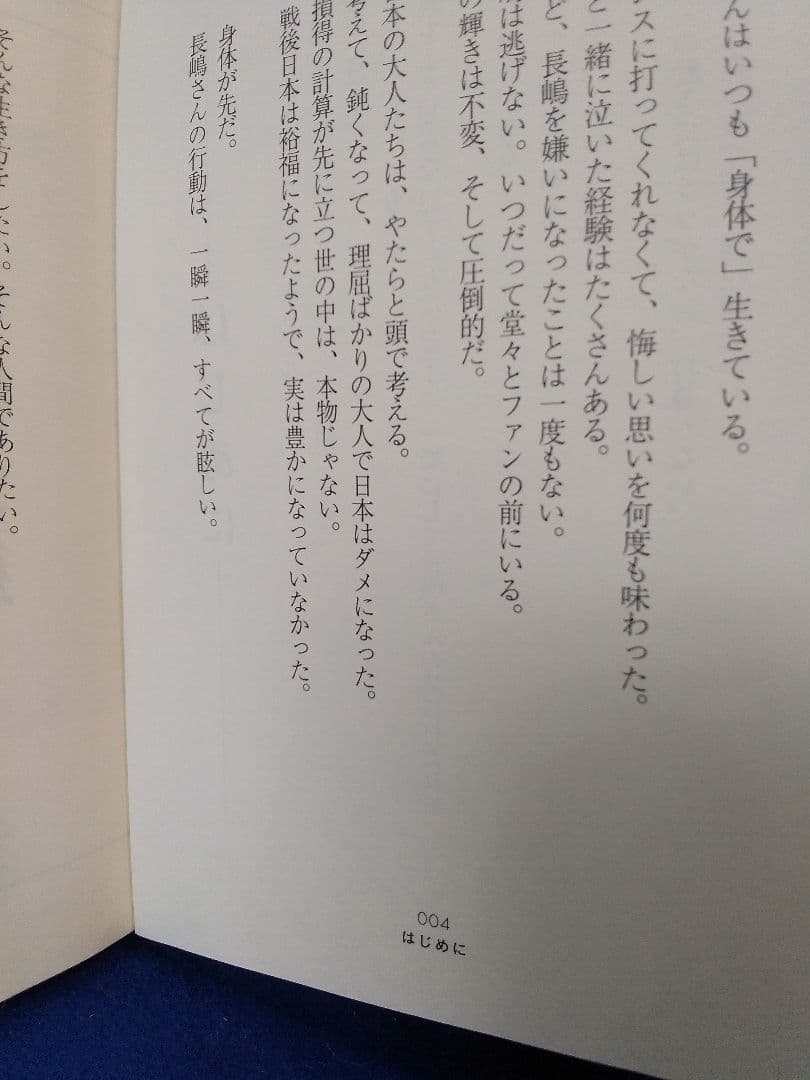 んはいつも「身体で」生きている。
スに打ってくれなくて、悔しい思いを何度も味わった。
と一緒に泣いた経験はたくさんある。
ど、長嶋を嫌いになったことは一度もない。
は逃げない。いつだって堂々とファンの前にいる。
の輝きは不変、そして圧倒的だ。
本の大人たちは、やたらと頭で考える。
考えて、鈍くなって、理屈ばかりの大人で日本はダメになった。
損得の計算が先に立つ世の中は、本物じゃない。
戦後日本は裕福になったようで、実は豊かになっていなかった。
身体が先だ。
長嶋さんの行動は、一瞬一瞬、すべてが眩しい。
そんな生き方をしたい。そんな人間でありたい。
004
はじめに